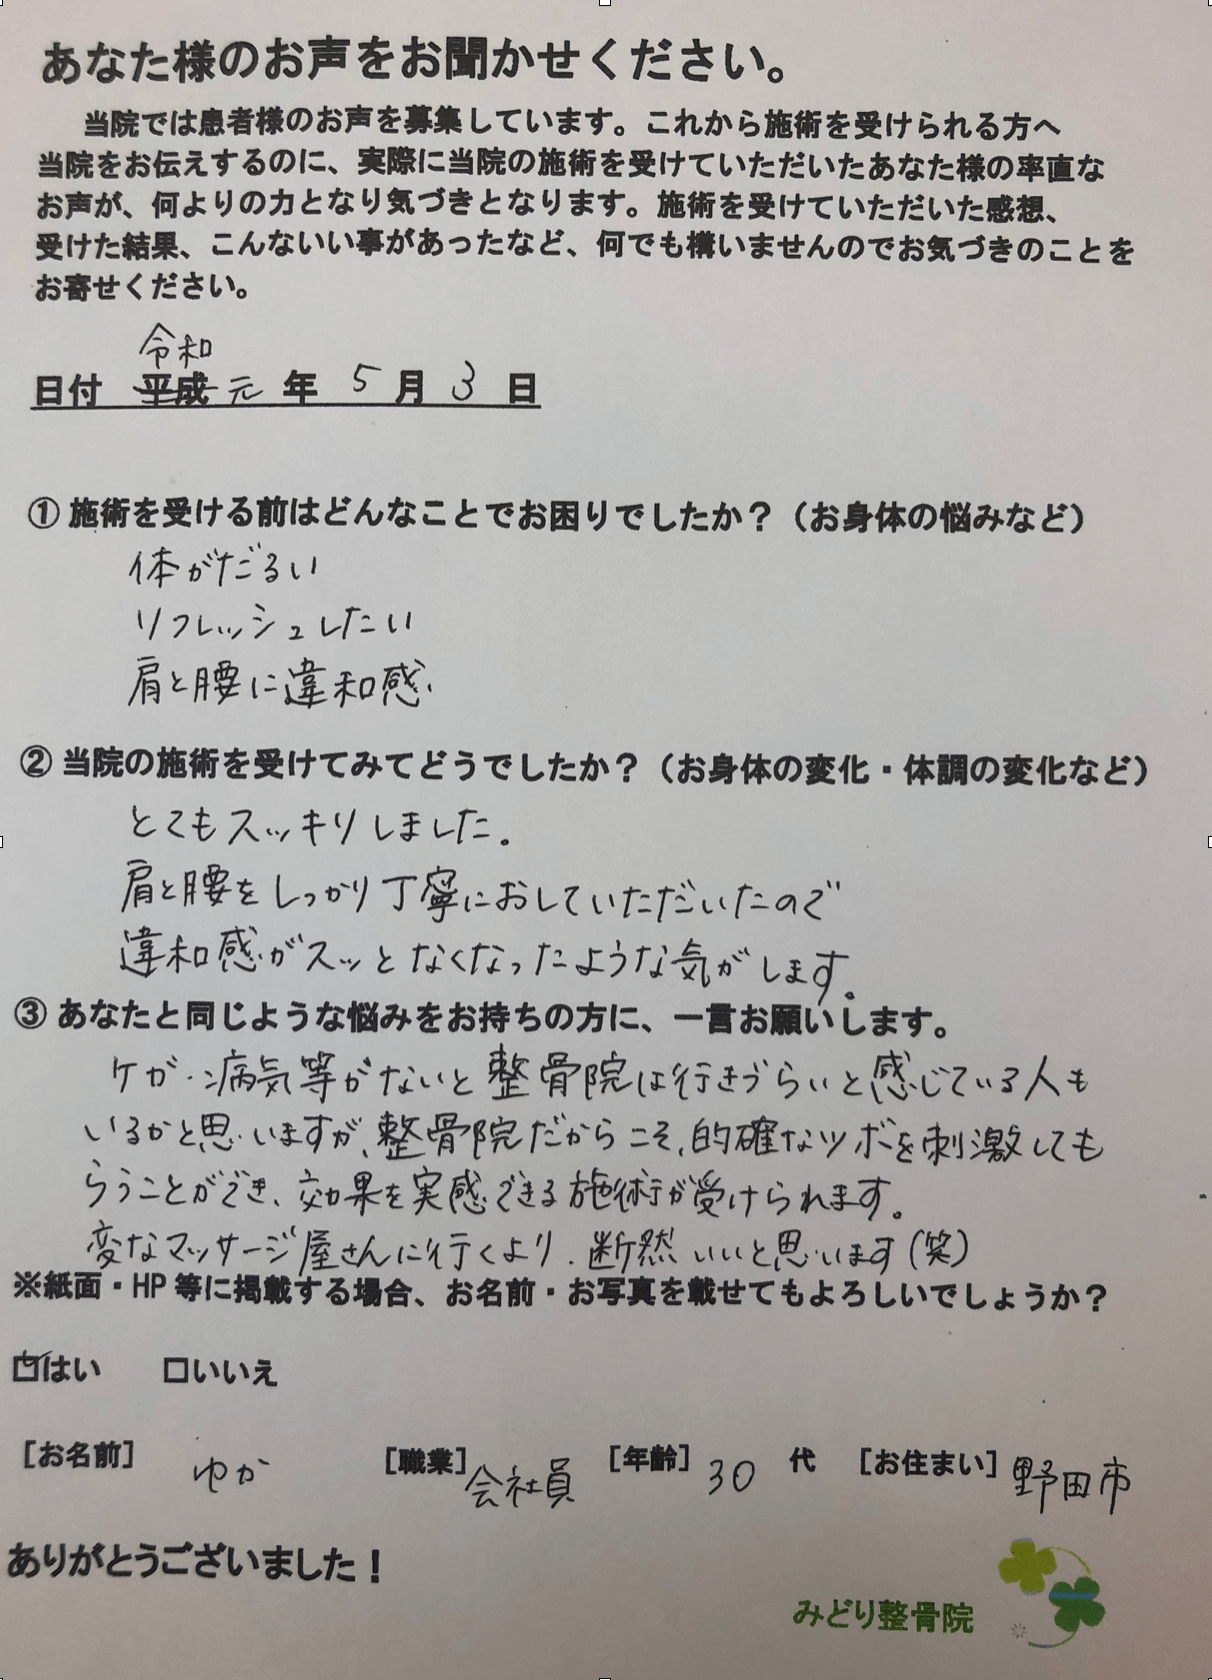 あなた様のお声をお聞かせください。
当院では患者様のお声を募集しています。これから施術を受けられる方へ
当院をお伝えするのに、実際に当院の施術を受けていただいたあなた様の率直な
お声が、何よりの力となり気づきとなります。施術を受けていただいた感想、
受けた結果、こんないい事があったなど、何でも構いませんのでお気づきのことを
お寄せください。
令和
日付 平成 元 年 5 月 3 日
① 施術を受ける前はどんなことでお困りでしたか？（お身体の悩みなど）
体がだるい
リフレッシュしたい
肩と腰に違和感
② 当院の施術を受けてみてどうでしたか？（お身体の変化・体調の変化など）
とてもスッキリしました。
肩と腰をしっかり丁寧におしていただいたので
違和感がスッとなくなったような気がします。
③ あなたと同じような悩みをお持ちの方に、一言お願いします。
ケガ・病気等がないと整骨院は行きづらいと感じている人も
いるかと思いますが、整骨院だからこそ、的確なツボを刺激しても
らうことができ、効果を実感できる施術が受けられます。
変なマッサージ屋さんに行くより、断然いいと思います(笑)
※紙面・HP等に掲載する場合、お名前・お写真を載せてもよろしいでしょうか？
☑はい □いいえ
[お名前] ゆか [職業] 会社員 [年齢] 30 代 [お住まい] 野田市
ありがとうございました！
みどり整骨院